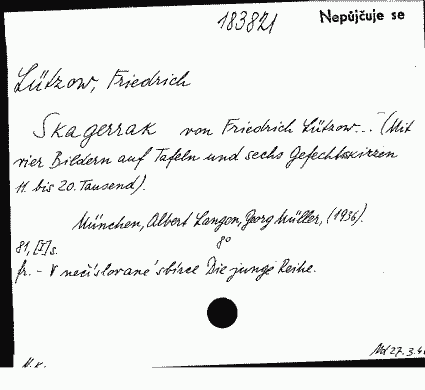 183821 Nepůjčuje se
Lützow, Friedrich
Skagerrak von Friedrich Lützow... (Mit
vier Bildern auf Tafeln und sechs Gefechtsskizzen
11. bis 20. Tausend).
München, Albert Langen, Georg Müller, (1936).
8°
81, [I] s.
fr. - V nečíslované sbírce Die junge Reihe.
27. 3. 4